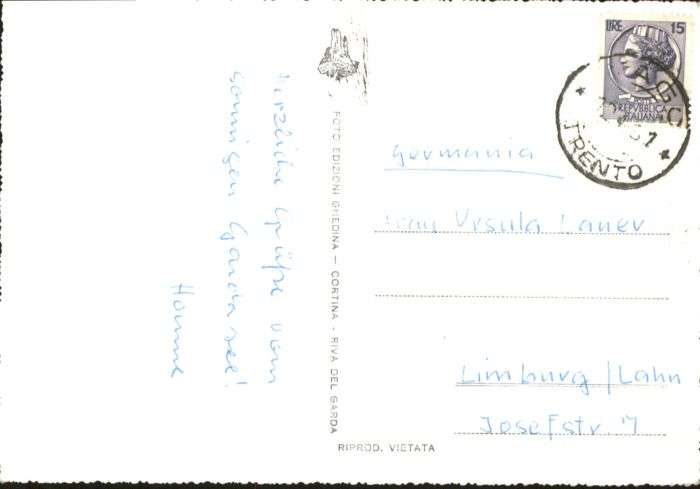 Herzliche Grüße vom
sonnigen Gardasee!
Hanne
FOTO EDIZIONI GHEDINA — CORTINA - RIVA DEL GARDA
RIPROD. VIETATA
LIRE 15
REPVBBLICA
ITALIANA
TRENTO
Germania
Frau Ursula Lauer
Limburg/Lahn
Josefstr. 7